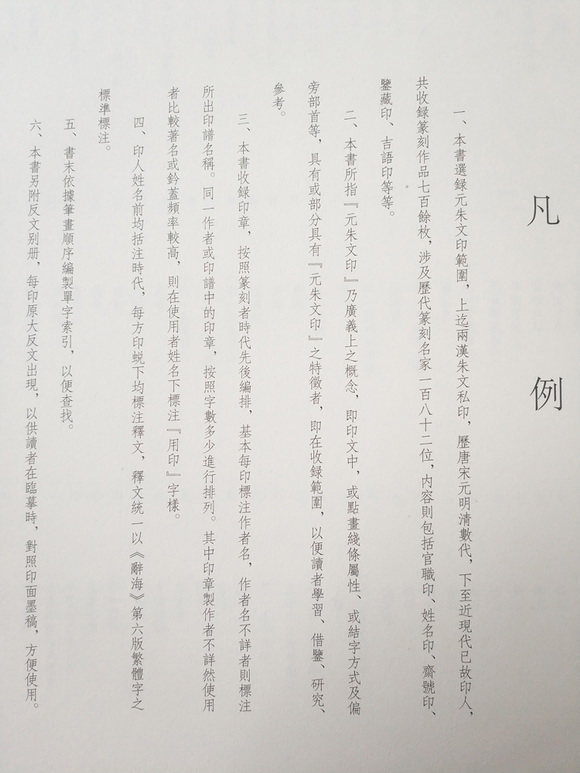 凡例
一、本書選録元朱文印範圍，上迄兩漢朱文私印，歷唐宋元明清數代，下至近現代已故印人，
共收録篆刻作品七百餘枚，涉及歷代篆刻名家一百八十二位，内容則包括官職印、姓名印、齋號印、
鑒藏印、吉語印等等。
二、本書所指『元朱文印』乃廣義上之概念，即印文中，或點畫綫條屬性、或結字方式及偏
旁部首等，具有或部分具有『元朱文印』之特徵者，即在收録範圍，以便讀者學習、借鑒、研究、
參考。
三、本書收録印章，按照篆刻者時代先後編排，基本每印標注作者名，作者名不詳者則標注
所出印譜名稱。同一作者或印譜中的印章，按照字數多少進行排列。其中印章製作者不詳然使用
者比較著名或鈐蓋頻率較高，則在使用者姓名下標注『用印』字樣。
四、印人姓名前均括注時代，每方印蜕下均標注釋文，釋文統一以《辭海》第六版繁體字之
標準標注。
五、書末依據筆畫順序編製單字索引，以便查找。
六、本書另附反文别册，每印原大反文出現，以供讀者在臨摹時，對照印面墨稿，方便使用。